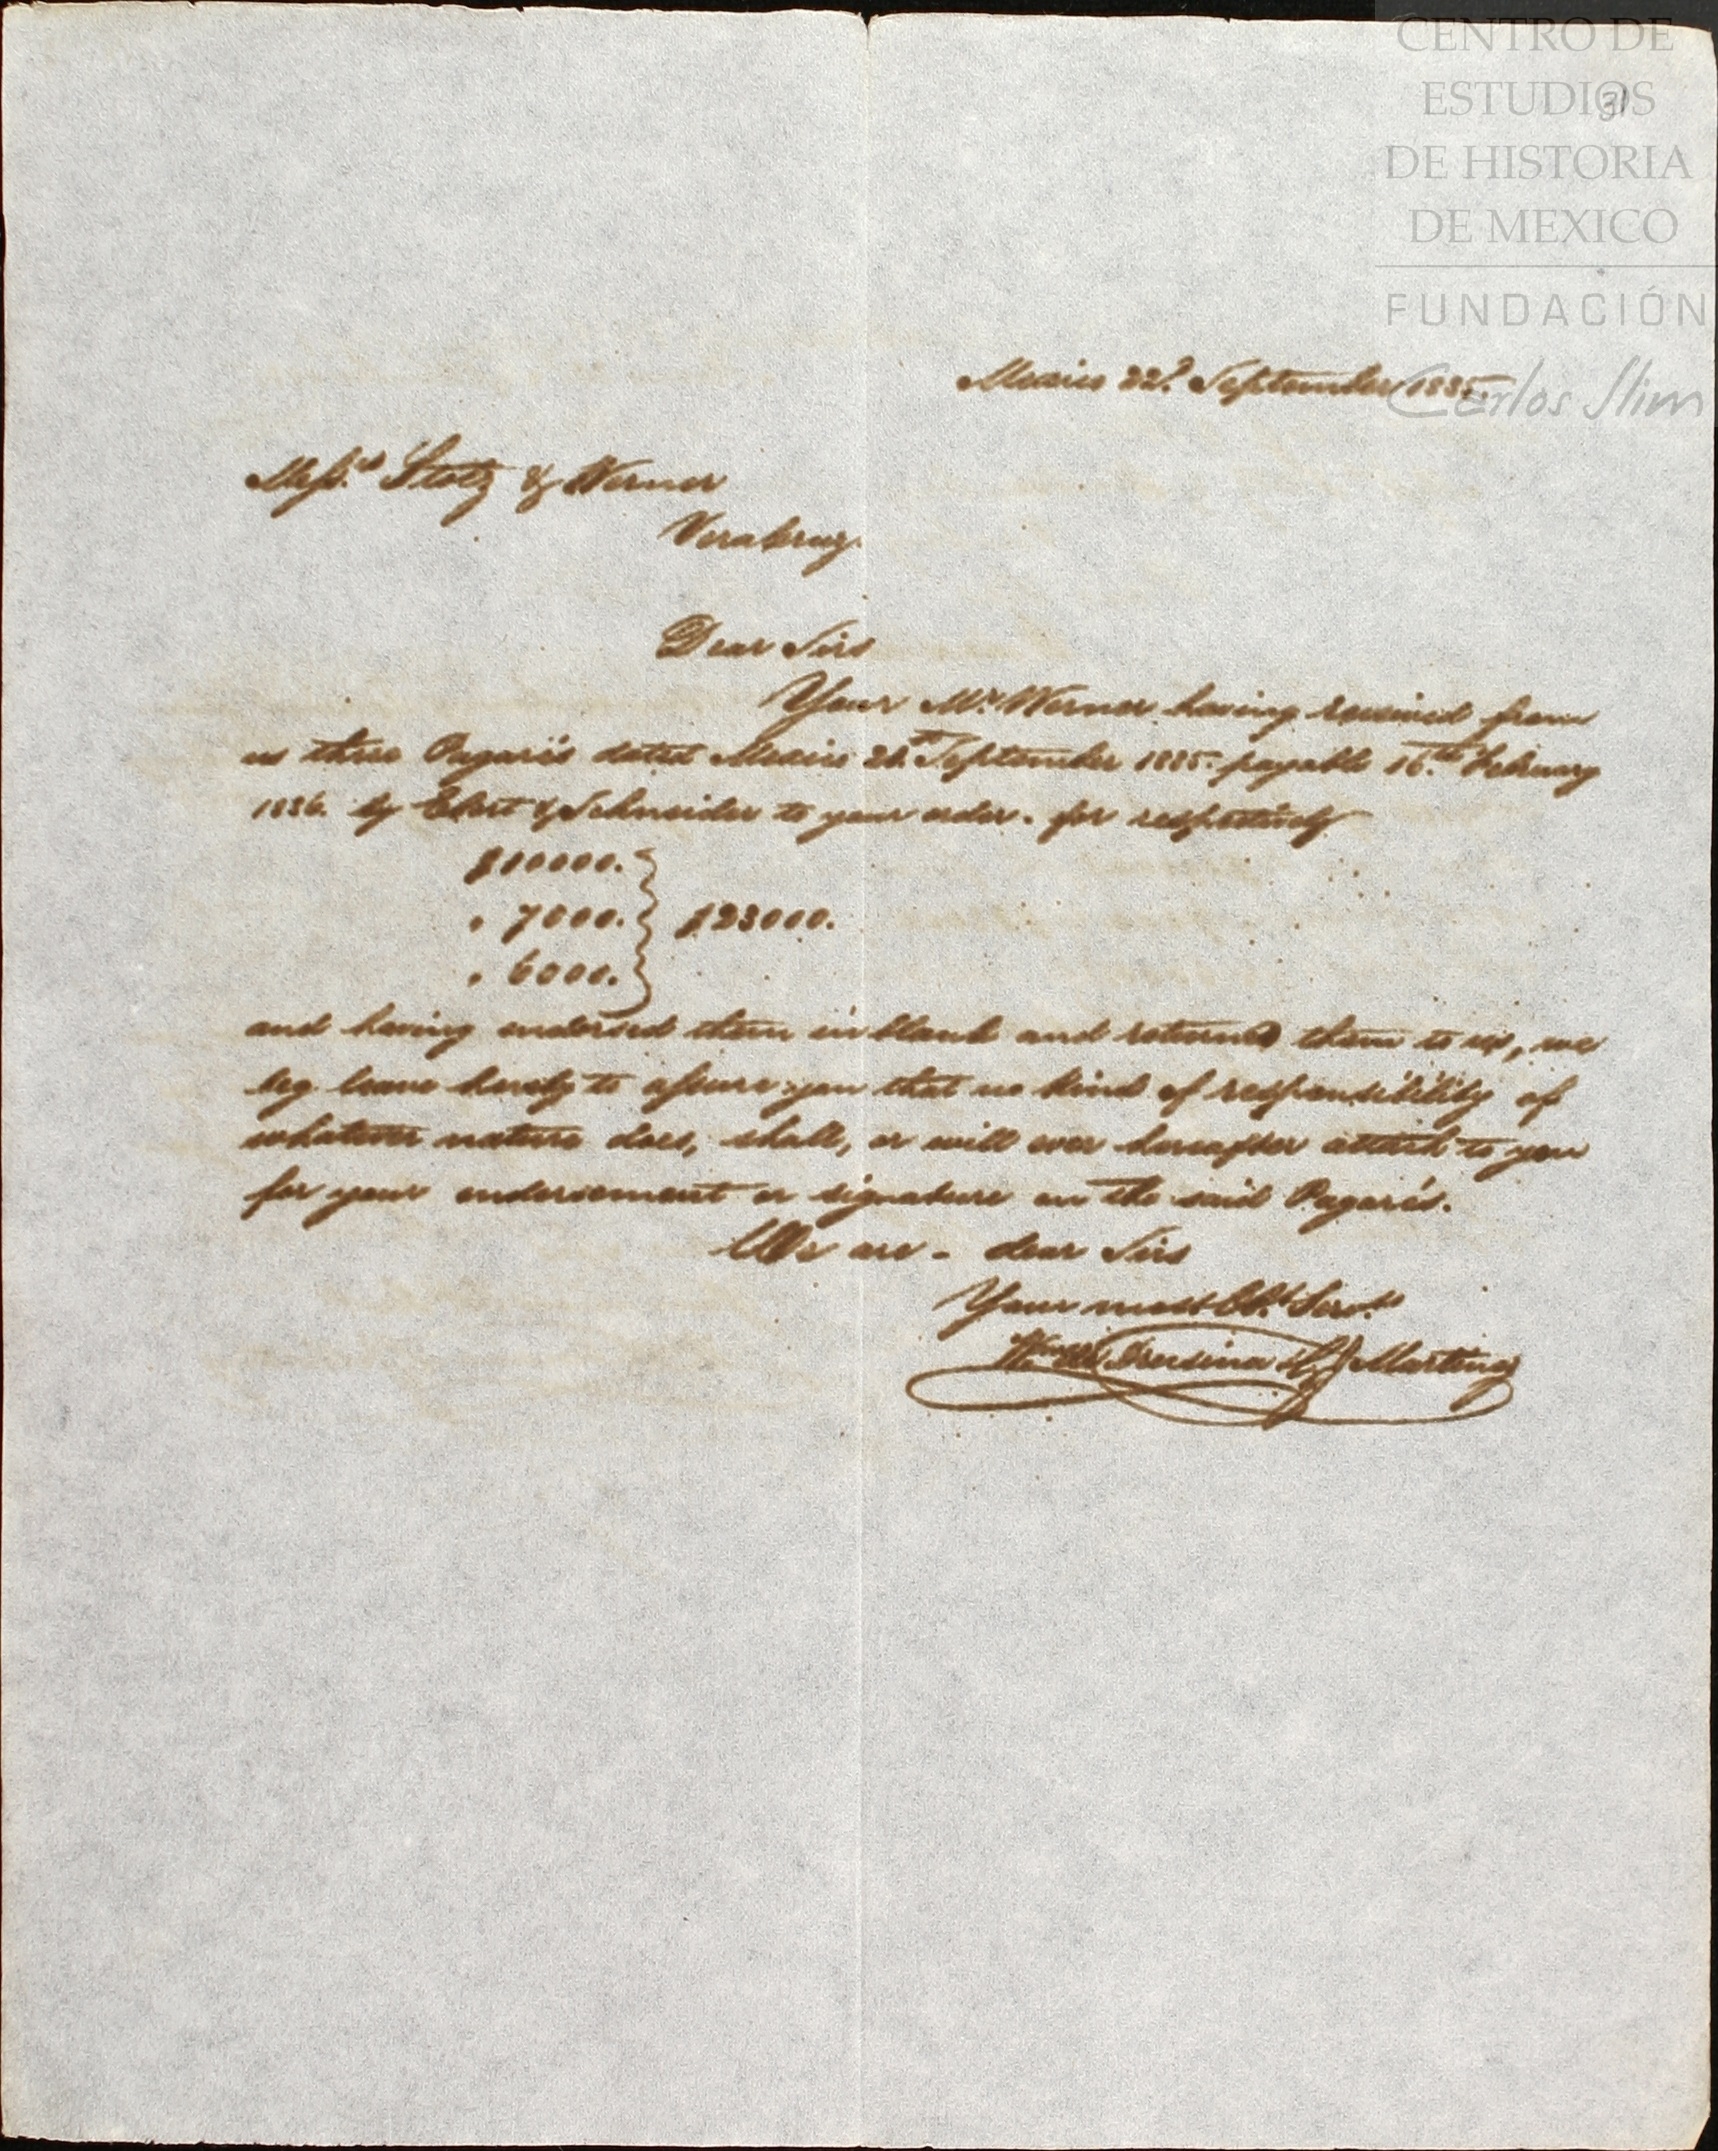 CENTRO DE
ESTUDIOS
DE HISTORIA
DE MEXICO
FUNDACIÓN
Carlos Slim
31
Mexico 22d September 1835.
Messrs Stolz & Werner
Vera Cruz.
Dear Sirs
Your Mr Werner having received from
us three Pagarés dated Mexico September 1835. payable 16th February
1836. by Ebert & Schneider to your order. for respectively
$10000.
" 7000. $23000.
" 6000.
and having endorsed them in blank and returned them to us, we
beg leave hereby to assure you that no kind of responsibility of
whatever nature does, shall, or will ever hereafter attach to you
for your endorsement or signature on the said Pagarés.
We are - dear Sirs
Your most Obt Servts
Wm de Drusina & J Martinez